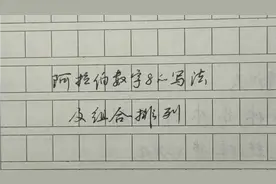 阿拉伯数字8的写法
及组合排列